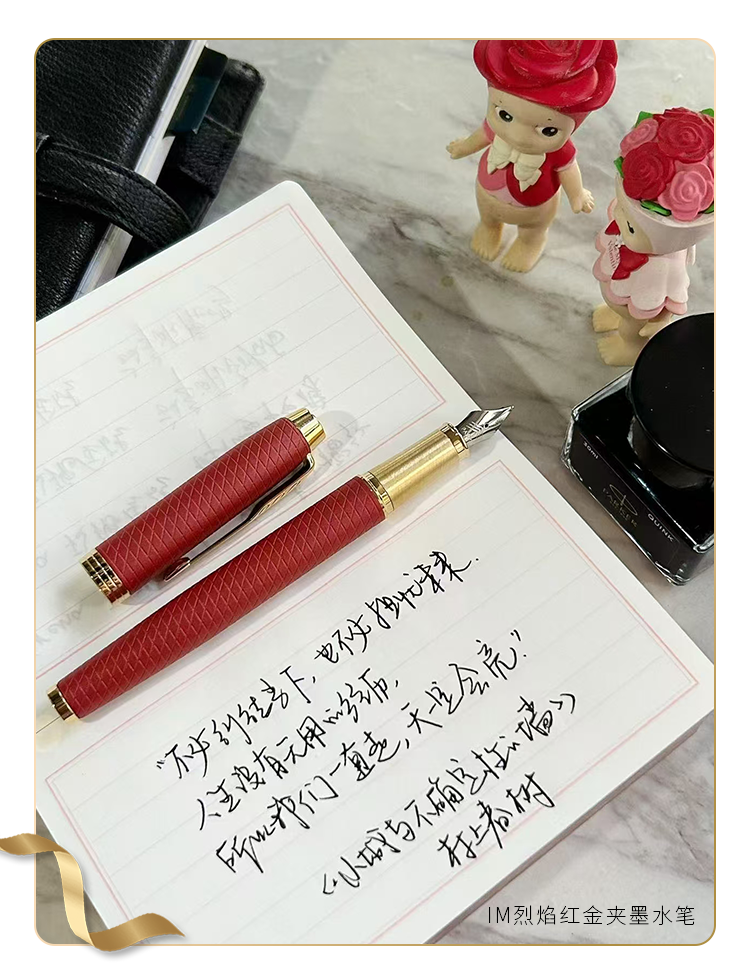 “不必纠结当下,也不必担忧未来.
人生没有无用的经历,
所以我们一直走,天总会亮.”
《小城与不确定性的墙》
村上春树
PARKER
QUINK
IM烈焰红金夹墨水笔